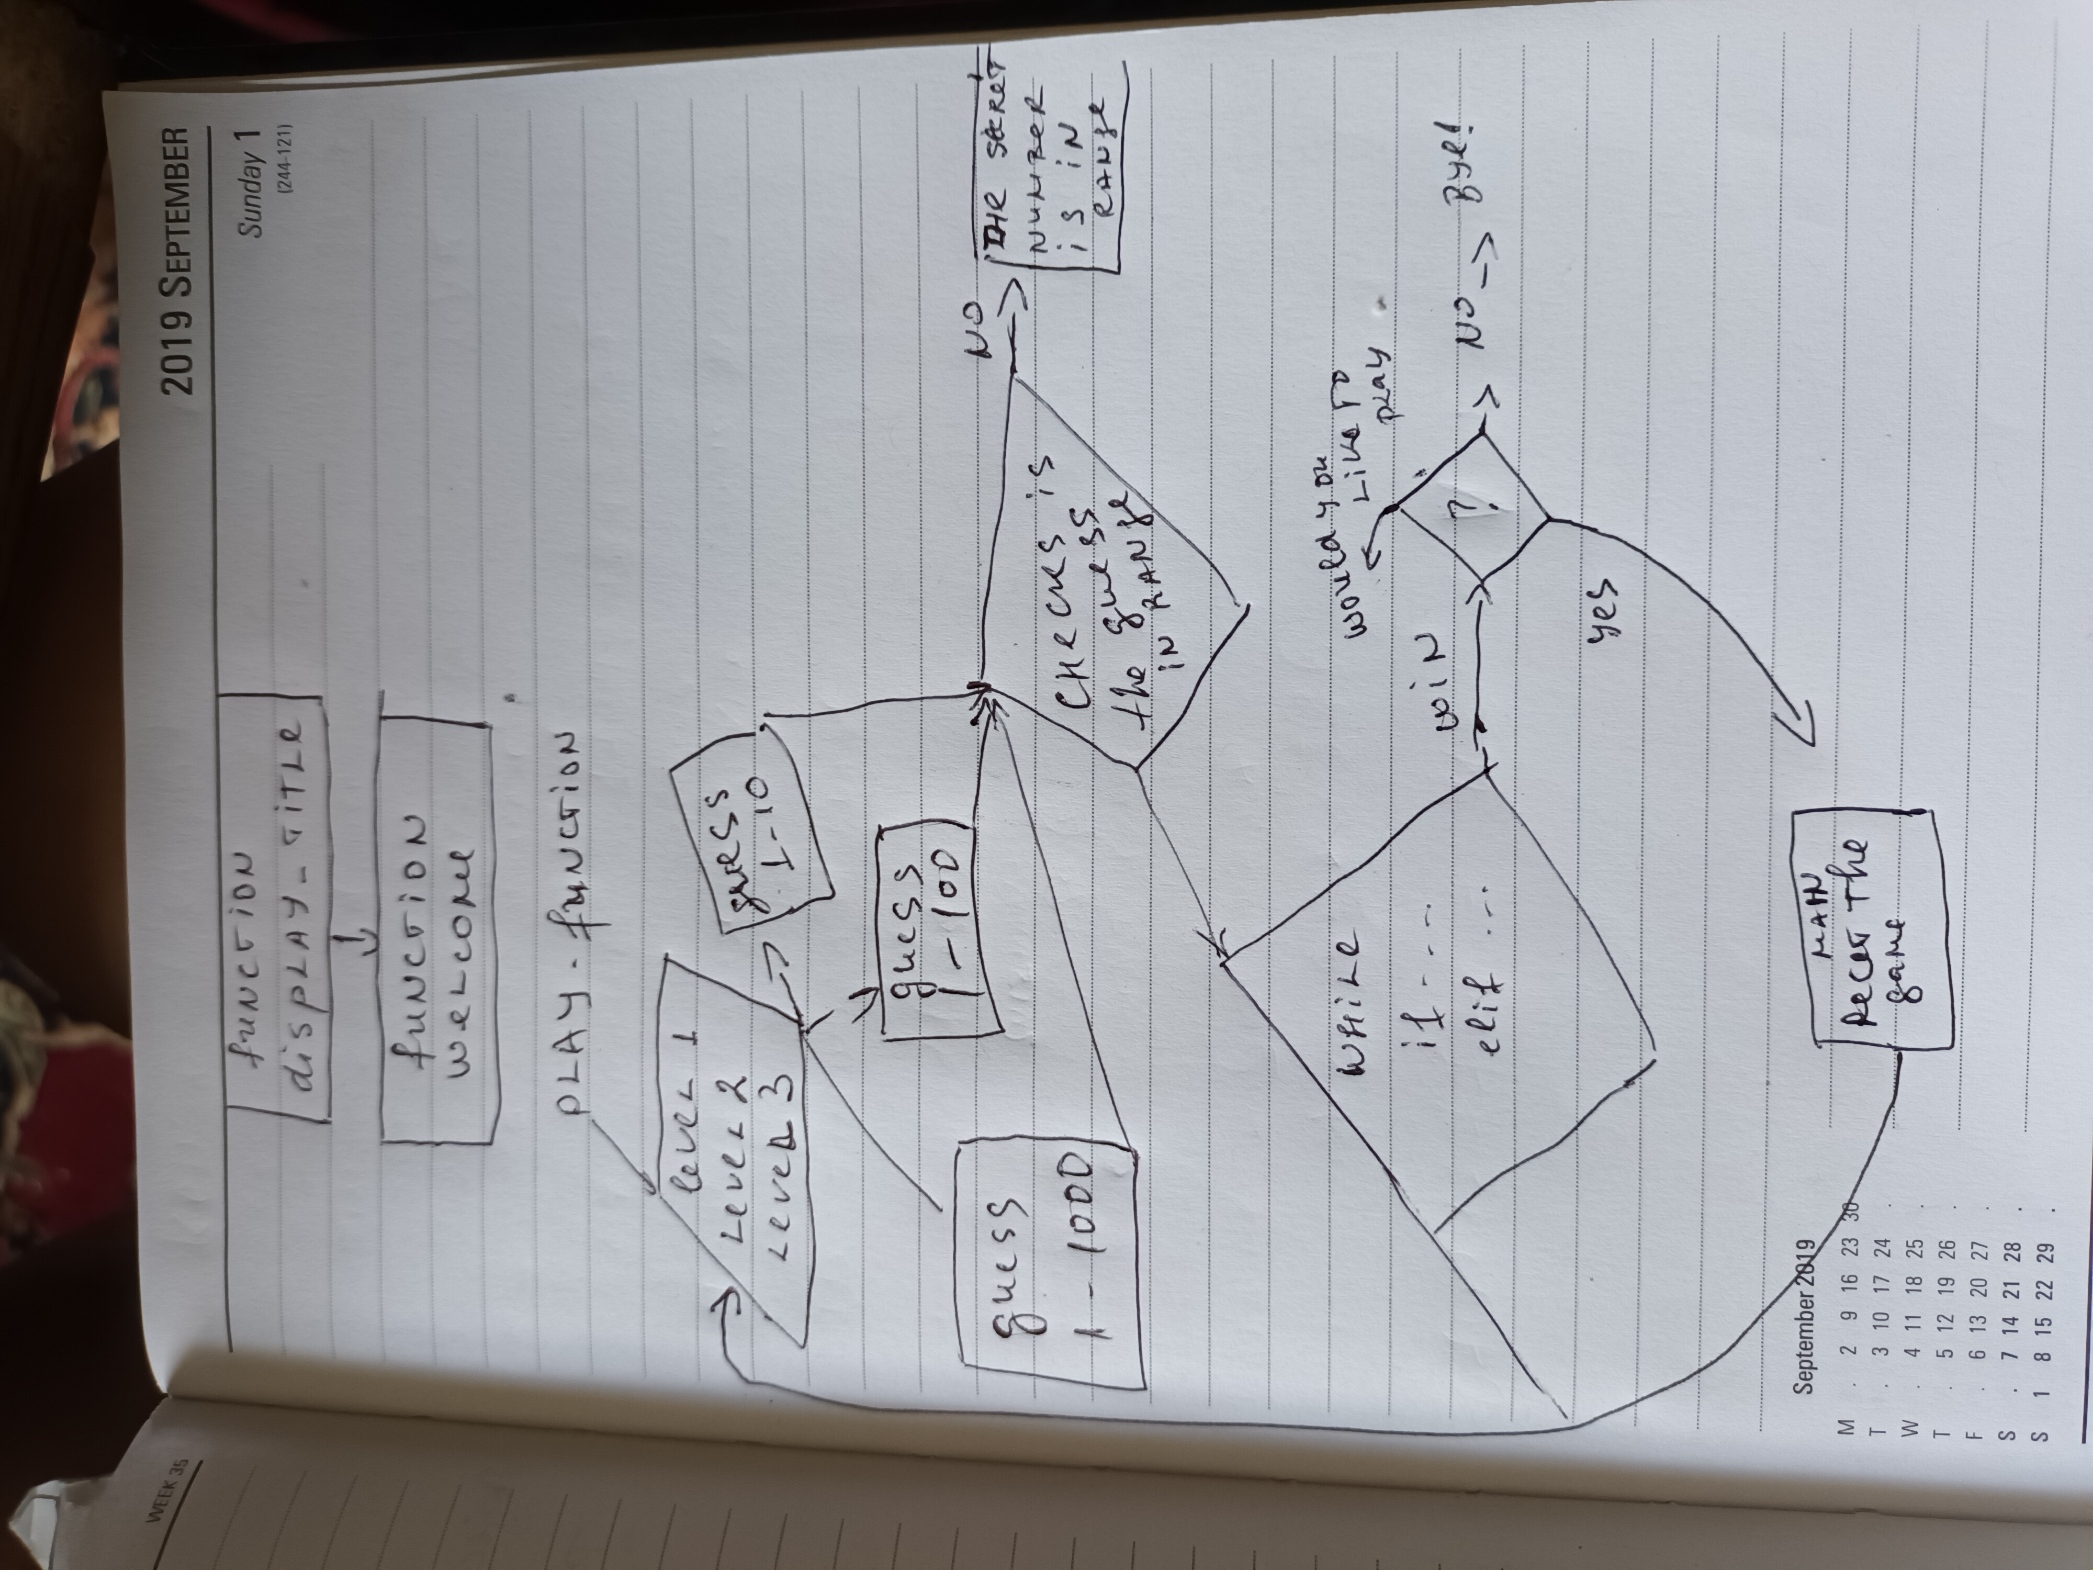 WEEK 35
2019 SEPTEMBER
Sunday 1
(244-121)
function
display_title
function
welcome
PLAY - function
level 1
Level 2
Level 3
guess
1-10
guess
1-100
guess
1-1000
NO
THE SECRET
NUMBER
is iN
RANge
CHecks is
the guess
iN RANge
WHiLe
if ----
elif ...
WiN
would you
Like To
play
?
NO
Bye!
yes
MAIN
Recet The
game
September 2019
M . 2 9 16 23 30
T . 3 10 17 24 .
W . 4 11 18 25 .
T . 5 12 19 26 .
F . 6 13 20 27 .
S . 7 14 21 28 .
S 1 8 15 22 29 .